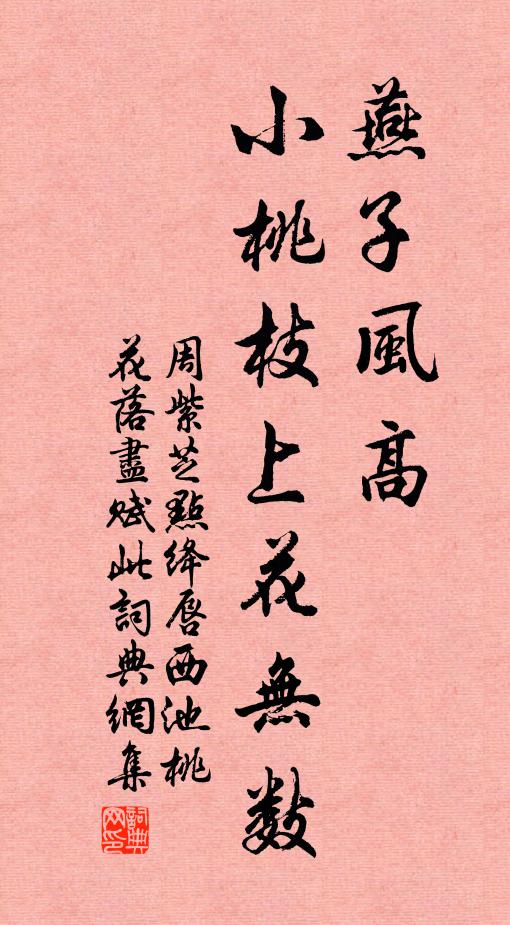 燕子風高
小桃枝上花無數
周紫芝點绛唇西池桃
花落盡賦此詞典網集
詞典
网印